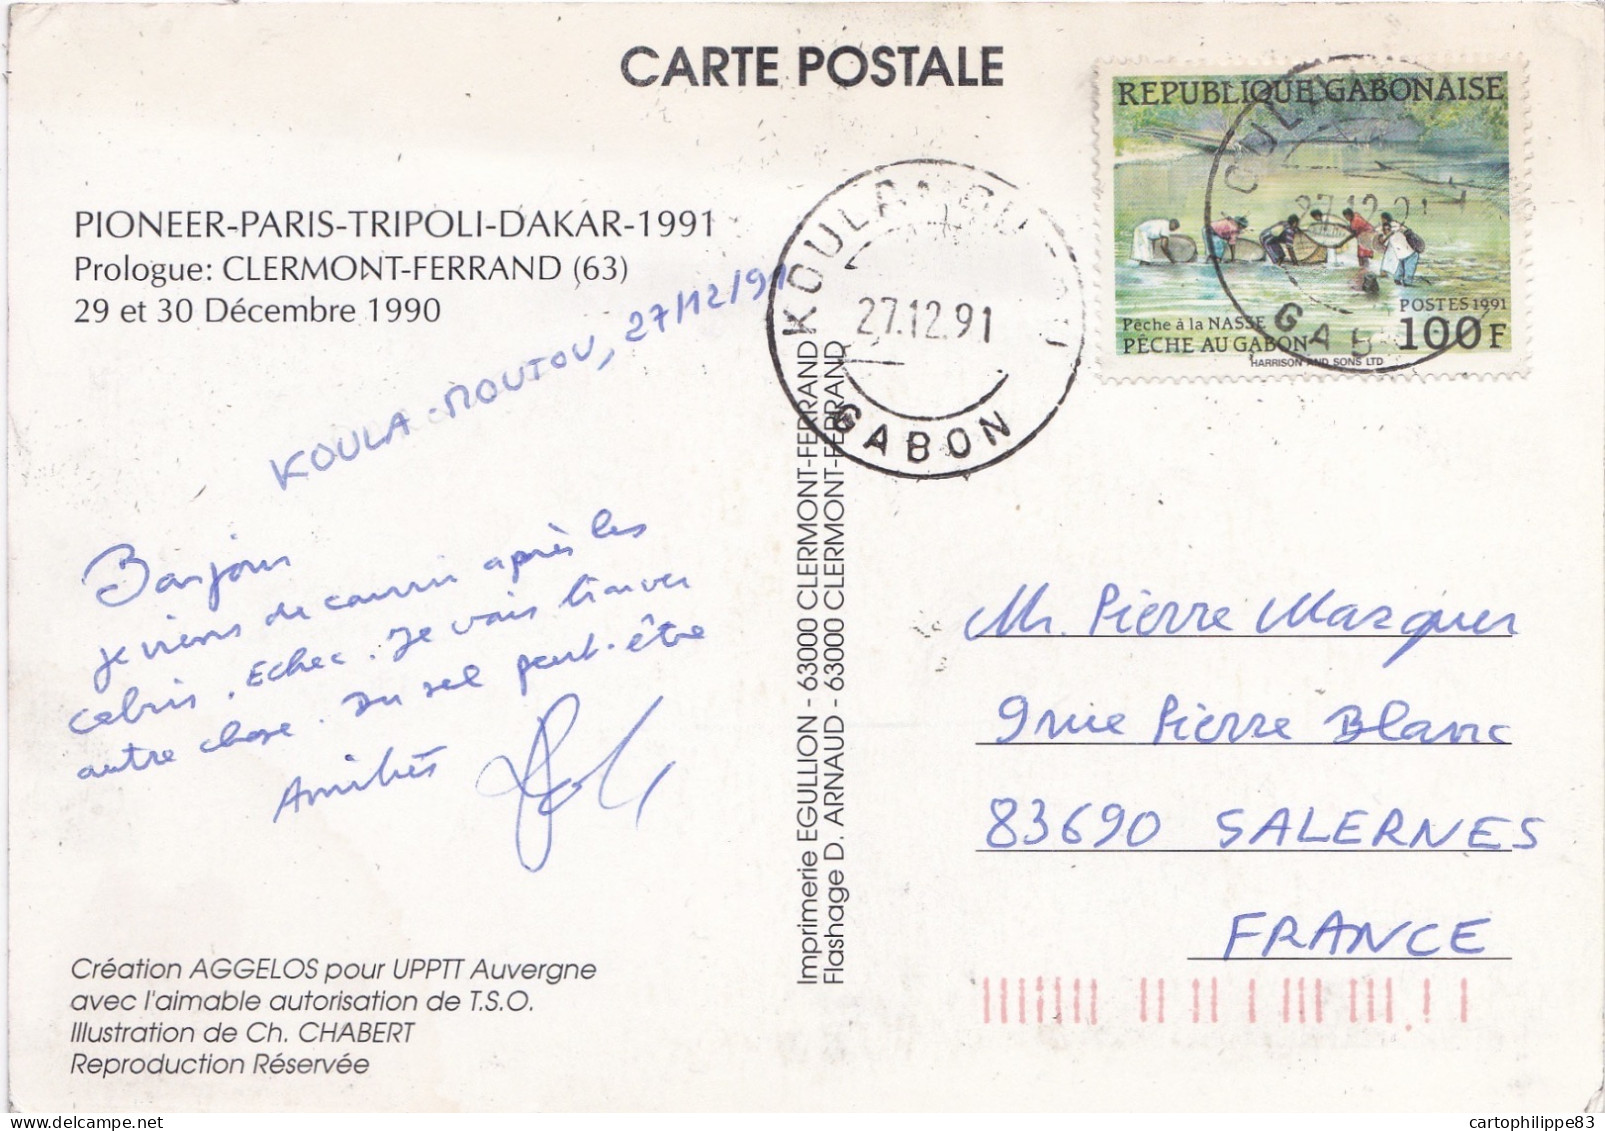 CARTE POSTALE
REPUBLIQUE GABONAISE
POSTES 1991
Pêche à la NASSE
PÊCHE AU GABON
100F
HARRISON AND SONS LTD
27.12.91
GABON
27.12.91
GAB
PIONEER-PARIS-TRIPOLI-DAKAR-1991
Prologue: CLERMONT-FERRAND (63)
29 et 30 Décembre 1990
KOULA-MOUTOU, 27/12/91
Bonjour
je viens de courrir après les
cabris. Echec. Je vais trouver
autre chose. Du sel peut-être
Amitiés
Création AGGELOS pour UPPTT Auvergne
avec l'aimable autorisation de T.S.O.
Illustration de Ch. CHABERT
Reproduction Réservée
Imprimerie EGULLION - 63000 CLERMONT-FERRAND
Flashage D. ARNAUD - 63000 CLERMONT-FERRAND
Mr. Pierre Marquer
9 rue Pierre Blanc
83690 SALERNES
FRANCE
cartophilippe83